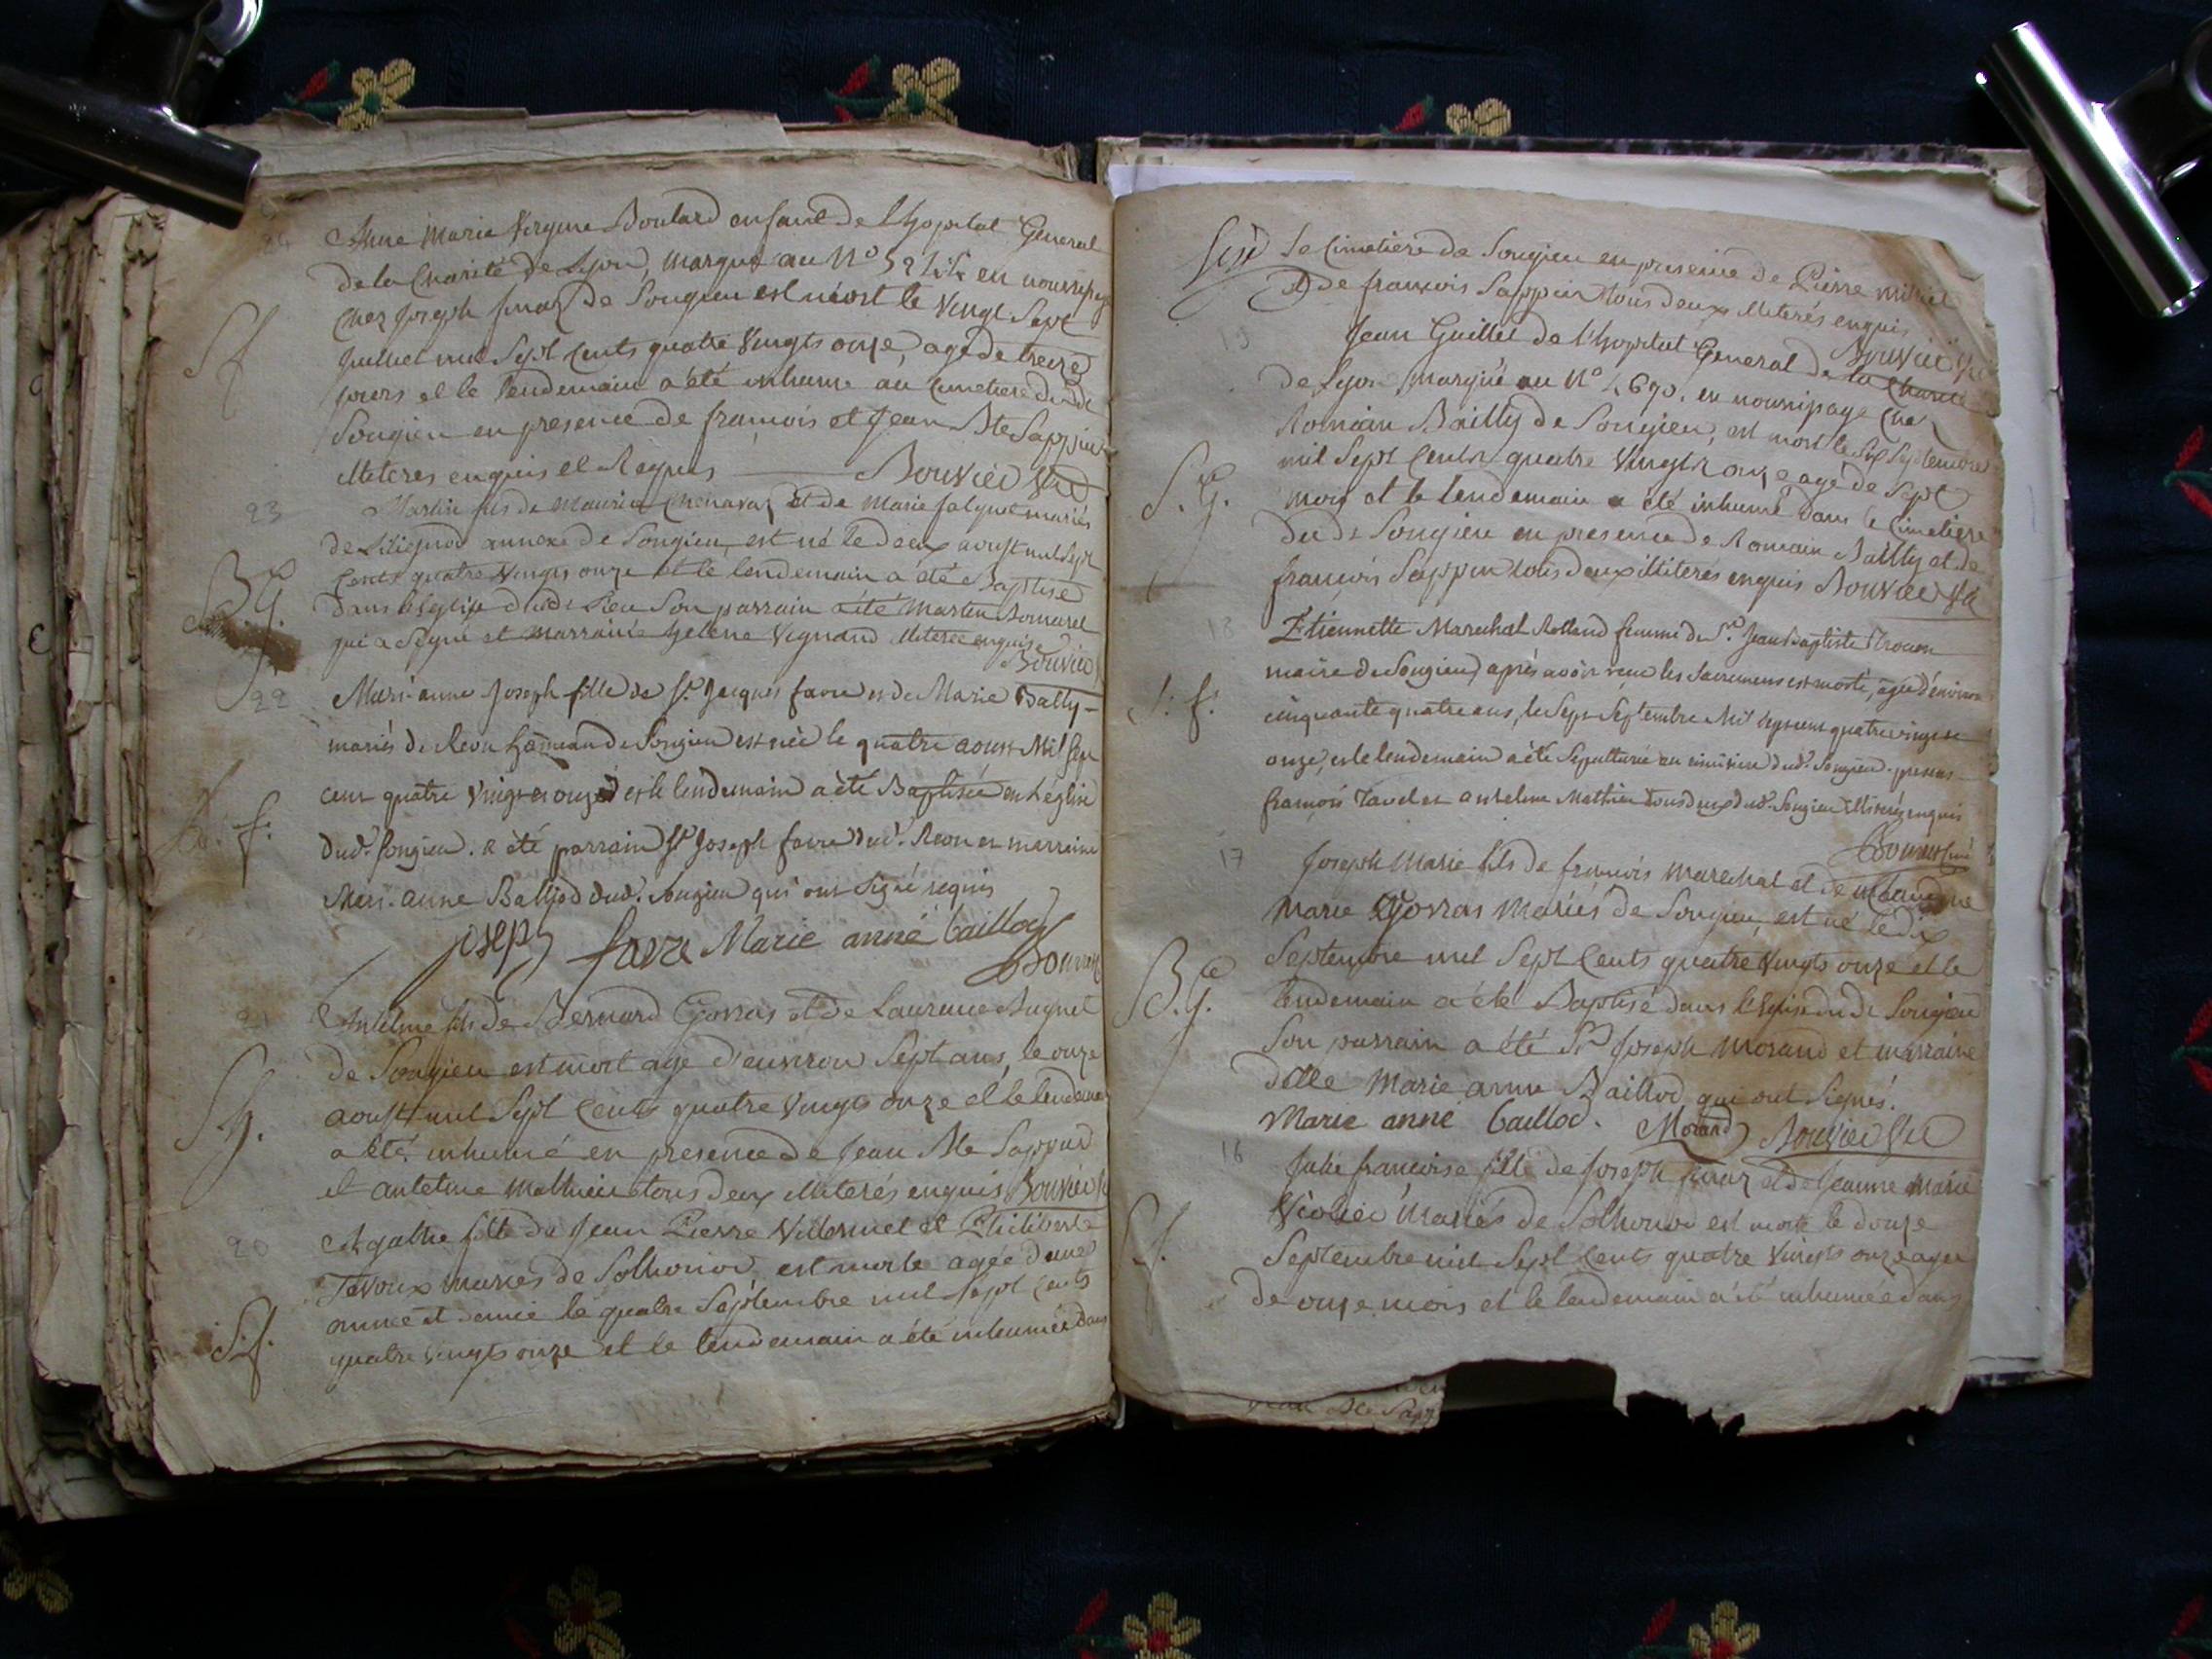 24
Anne Marie Virginie Boulard enfant de l'hopital General
de la Charité de Lyon, marqué au N° en nourrissage
chez Joseph de Songieu est mort le vingt Sept
Juillet mil Sept Cents quatre Vingts onze, agé de treize
jours et le lendemain a été inhumé au cimetiere dud.
Songieu en presence de françois et Jean Bte Sappin
illiteres enquis et Requis Bouvier
S f
23
Martin fils de Maurice Chenavaz et de Marie falquet mariés
de annexe de Songieu, est né le deux aoust mil Sept
Cents quatre Vingts onze et le lendemain a été Baptisé
dans l'Eglise dud. Lieu Son parrain a été Martin
qui a Signé et marraine helene Vignand illiterée enquise
Bouvier
B G
22
Mari-anne Joseph fille de Sr. Jacques favre et de Marie Bally-
mariés de Reon hameau de Songieu est née le quatre aoust Mil Sept
cent quatre Vingt et onze et le lendemain a été Baptisée en L'église
dud. Songieu. a été parrain Sr Joseph favre dud. Reon et marraine
Mari-anne Balliod dud. Songieu qui ont signé requis
f.
joseph favre Marie anne bailliod
Bouvier
21
Antelme fils de Bernard Gorras et de Laurence Buquet
de Songieu est mort agé d'environ Sept ans, le onze
aoust mil Sept Cents quatre Vingts onze et le lendemain
a été inhumé en presence de Jean Bte Sappin
et antelme Mathieu tous deux illiterés enquis Bouvier
S g.
20
Agathe fille de Jean Pierre Villermet et Philiberte
Tavoux mariés de Sothonod est morte agée d'une
année et demie le quatre Septembre mil Sept Cents
quatre vingts onze et le lendemain a été inhumée dans
S. f.
le Cimetiere de Songieu en presence de Pierre
et de françois Sappin tous deux illiterés enquis
Bouvier
19
Jean Guillet de l'hopital General de la Charité
de Lyon, marqué au N° 4690. en nourrissage chez
Romain Bailly de Songieu, est mort le Six Septembre
mil Sept Cents quatre Vingts onze agé de Sept
mois et le lendemain a été inhumé dans le Cimetiere
dud. Songieu en presence de Romain Bailly et de
françois Sappin tous deux illiterés enquis Bouvier
S. G.
18
Etiennette Marechal Rolland femme de Sr. Jean Baptiste
maire de Songieu, après avoir reçu les Sacremens est morte, agée d'environ
cinquante quatre ans, le Sept Septembre Mil Sept cent quatre vingt et
onze, et le lendemain a été Sepulturée au cimitiere dud. Songieu. presens
françois Tavel et antelme Mathieu tous deux dud. Songieu illiterés enquis
Bouvier Curé
S. f.
17
Joseph Marie fils de françois Marechal et de
Marie Gorras Mariés de Songieu, est né le dix
Septembre mil Sept Cents quatre Vingts onze et le
lendemain a été Baptisé dans l'Eglise dud. Songieu
Son parrain a été Sr Joseph Morand et marraine
delle Marie anne Bailliod qui ont Signés.
Marie anne bailliod. Morand Bouvier
B. g.
16
Julie françoise fille de Joseph et de Jeanne Marie
Mariés de Sothonod est morte le douze
Septembre mil Sept Cents quatre Vingts onze agée
de onze mois et le lendemain a été inhumée dans
S f.
Jean Bte Sapp